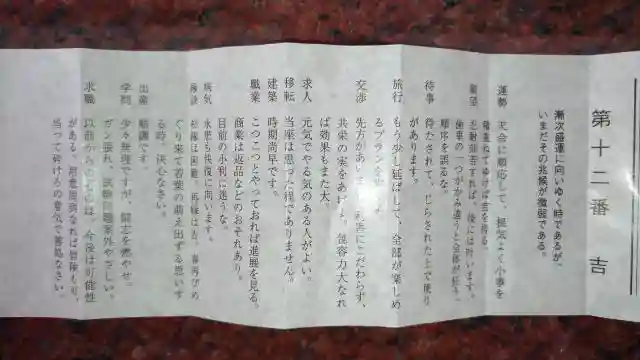 第十二番 吉
漸次盛運に向いゆく時であるが、
いまだその兆候が微弱である。
運勢 天命に順応して、根気よく小事を
積重ねてゆけば吉を得る。
願望 忍耐
すれば、後には叶います。
歯車の一つがかみ違うと全部が狂う。
順序を誤るな。
待事 待たされて、じらされた上で便り
があります。
旅行 もう少し延ばして、全部が楽しめ
るプランを
交渉 先方があ
にこだわらず、
共栄の実をあげよ。包容力大なれ
ば効果もまた大。
求人 元気でやる気のある人がよい。
移転 当座は思った程でありません。
建築 時期尚早です。
職業 こつこつとやっておれば進展を見る。
商業は返品などのおそれあり。
目前の小利に迷うな。
病気 永患も快復に向います。
縁談 初縁は困難、再縁は吉。春再びめ
ぐり来て若葉の萌え出ずる思いす
る時、決心なさい。
出産 順調です。
学問 少々無理ですが、闘志を燃やせ。
ガン張れ、試験は案外やさしい。
求職 以前からのものは、今後は可能性
がある。用意周到なれば冒険も可、
当って砕けろの意気で善処なさい。